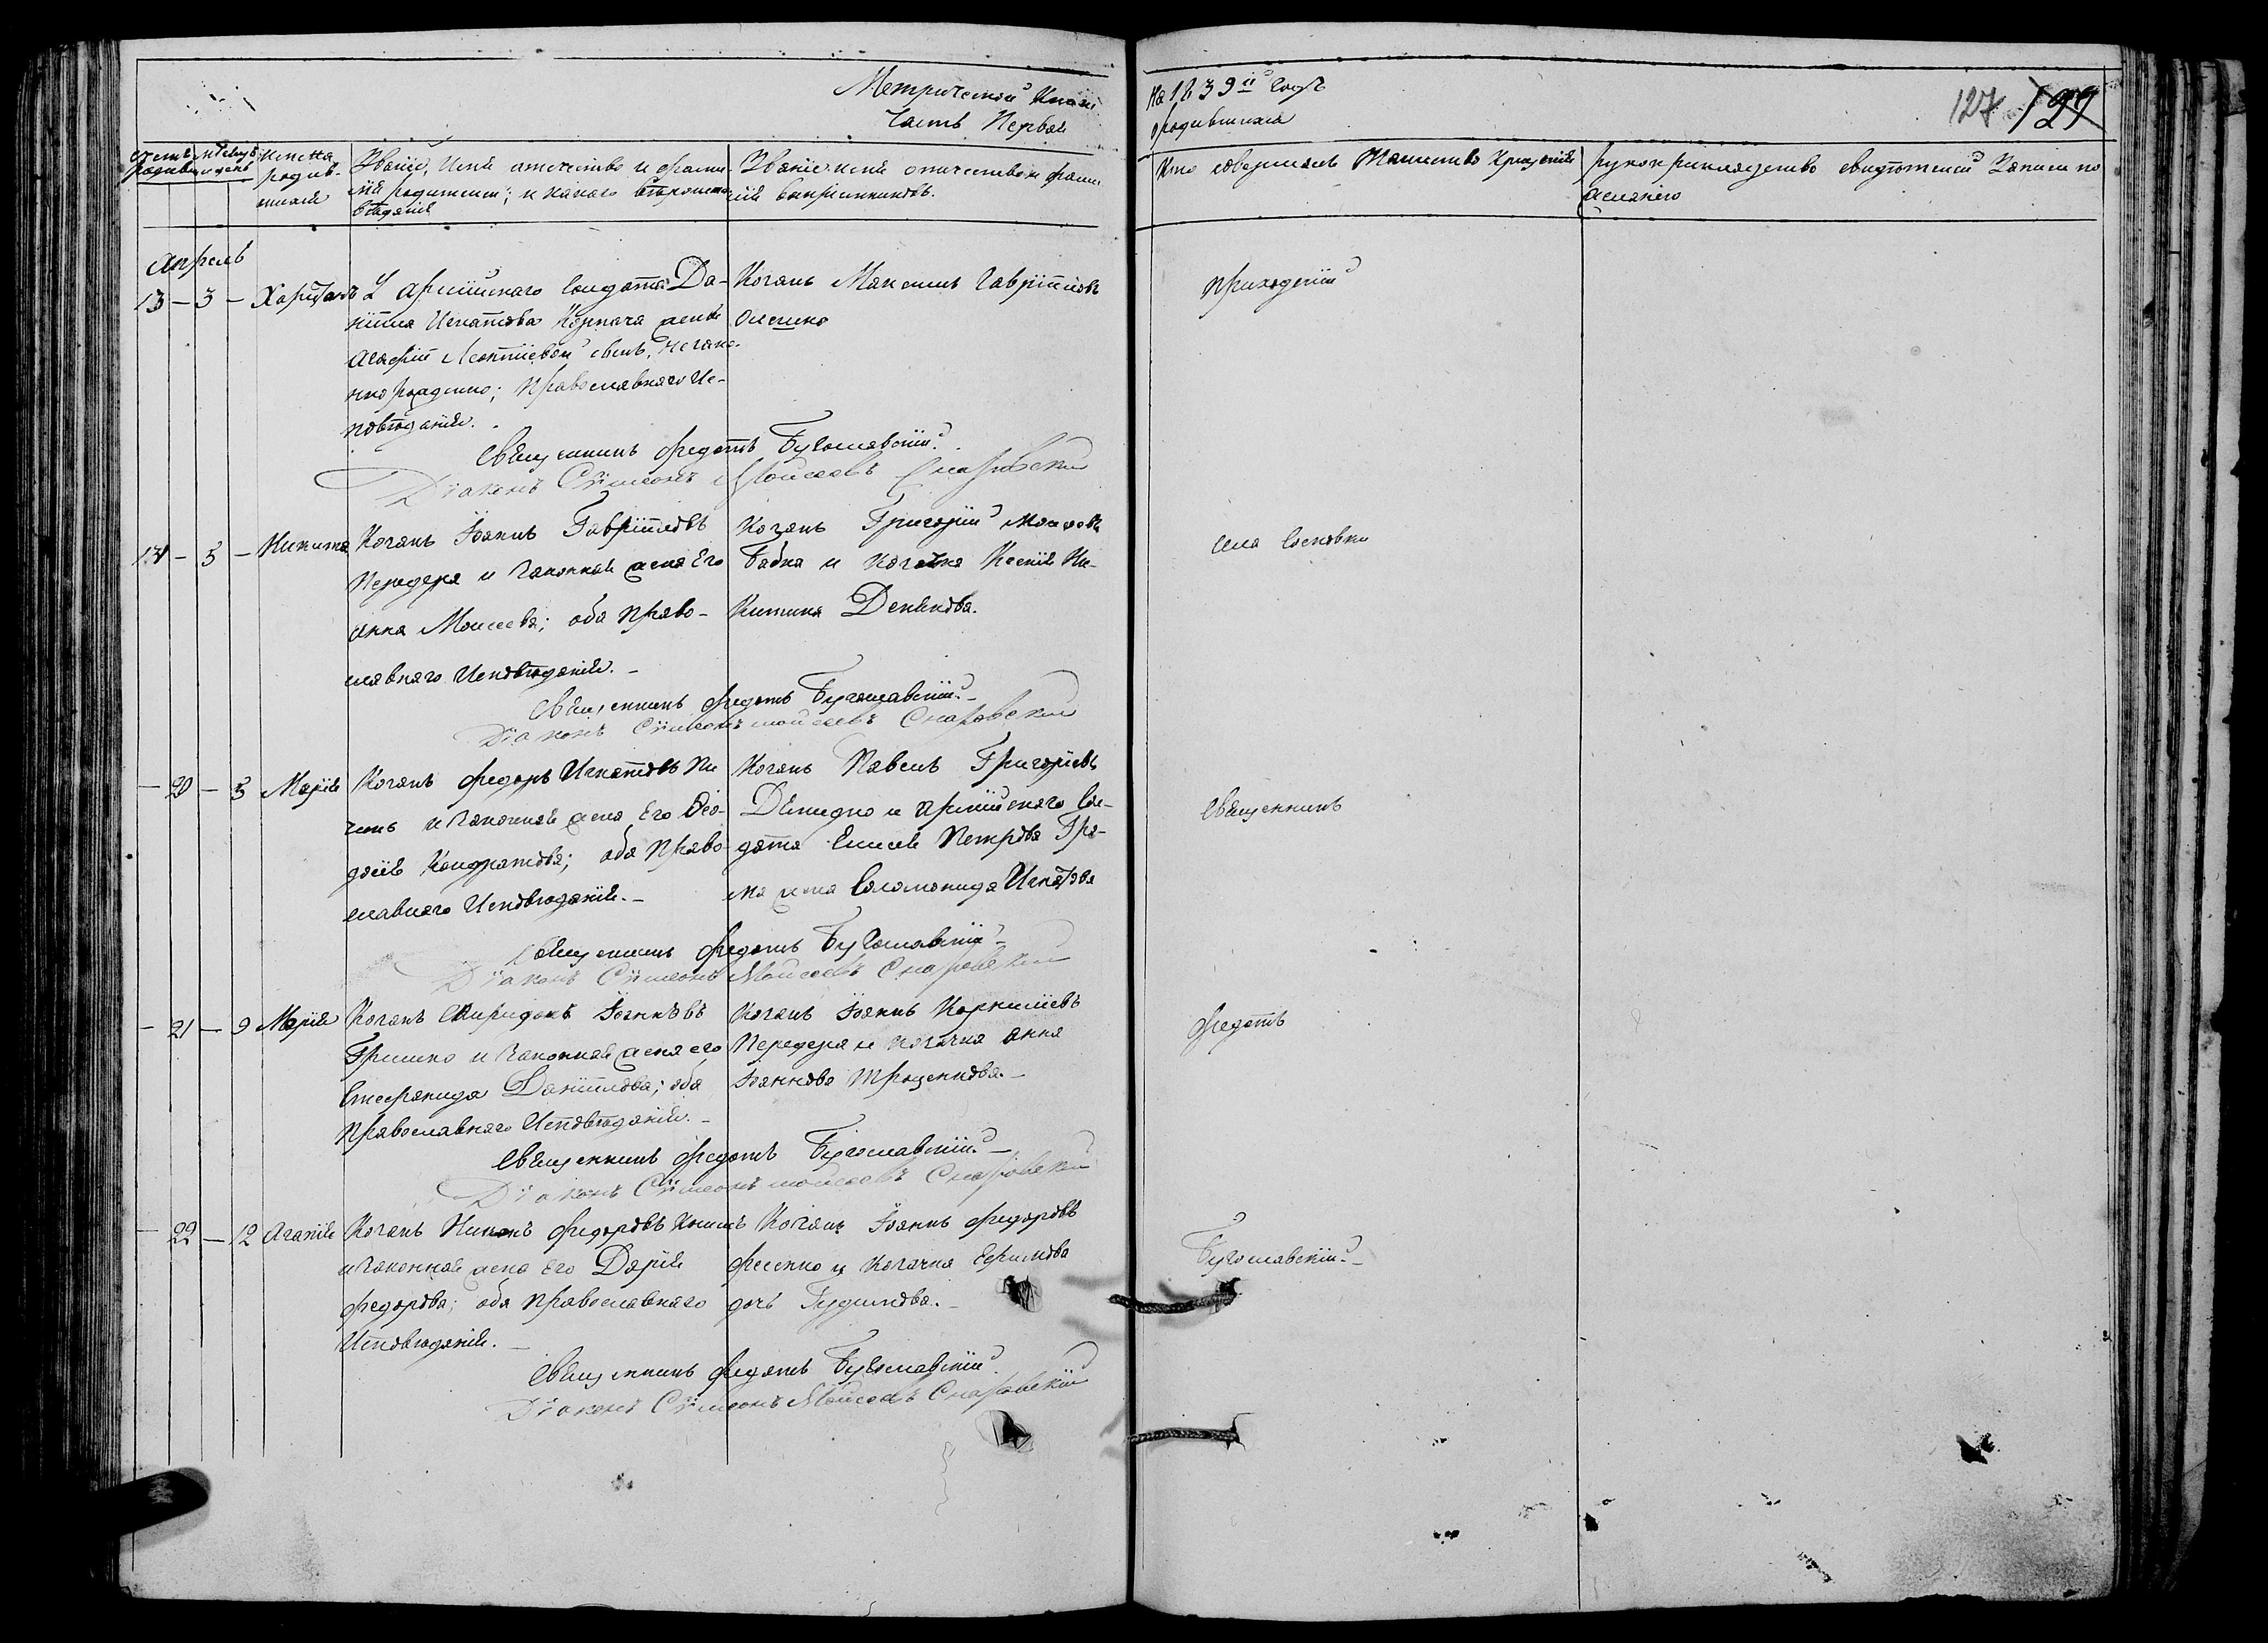 Метрической Книги
Часть Первая
На 1839й годъ
о родившихся
127 129
Счетъ родивш
Мѣсяцъ и день
Имена родив-
шихся
Званіе, Имя отчество и фами-
лія родителей; и какого вѣроиспо-
вѣданія
Званіе имя отчество и фами
лія воспріемниковъ.
Кто совершалъ Таинство Крещенія
рукоприкладство свидѣтелей Записи по
желанію
Апрель
13 – 3 – Харитонъ
У Армійскаго Солдата Да-
нііла Игнатова жены
Агафіи Леонтіевой сынъ, незако-
но рожденно; Православнаго Ис-
повѣданія.
Козакъ Максимъ Гавріиловъ
приходскій
Священникъ Федотъ Бугославскій.
Діаконъ Сумеонъ Моисеевъ
– 5 – Никита
Козакъ Іоаннъ Гавріиловъ
Передера и Законная жена Его
Анна Моисеева; оба Право-
славнаго Исповѣданія. –
Козакъ Григорій
Бабка и Козачка Ксенія Ни-
китина Денѣкова.
села Сосновки
Священникъ Федотъ Бугославскій. –
Діаконъ Сумеонъ Моисеевъ
– 20 – 5 Марія
Козакъ Федоръ Игнатовъ
и Законная жена Его Фео-
досія Кондратова; оба Право-
славнаго Исповѣданія. –
Козакъ Павелъ Григоріевъ
Демидко и Армійскаго Сол-
дата Елисея Петрова
жена Соломонида Игнатова
Священникъ
Священникъ Федотъ Бугославскій –
Діаконъ Сумеонъ Моисеевъ
– 21 – 9 Марія
Козакъ Спиридонъ Іоанновъ
Гришко и Законная жена его
Стефанида Даниилова; оба
Православнаго Исповѣданія. –
Козакъ Іоаннъ Корниліевъ
Передера и козачка Анна
Іоаннова Троценкова. –
Федотъ
Священникъ Федотъ Бугославскій –
Діаконъ Сумеонъ Моисеевъ
– 22 – 12 Агапія
Козакъ Никонъ Федоровъ
и Законная жена Его Дарія
Федорова; оба Православнаго
Исповѣданія. –
Козакъ Іоаннъ Федоровъ
Фесенко и Козачка Ефимова
дочь Гудимова. –
Бугославскій. –
Священникъ Федотъ Бугославскій
Діаконъ Сумеонъ Моисеевъ